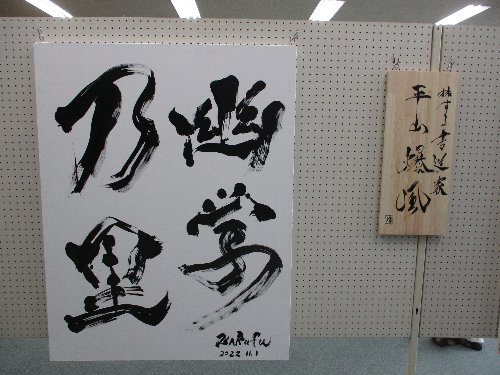 幽
乃里
BAKUFU
2022.11.1
旅する書道家
平山爆風